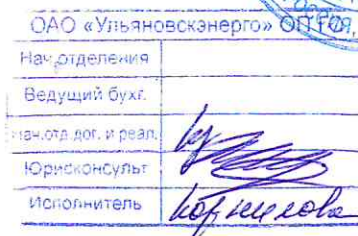 ОАО «Ульяновскэнерго»
Нач.отделения
Ведущий бухг.
Нач.отд.дог. и реал.
Юрисконсульт
Исполнитель Корнилова